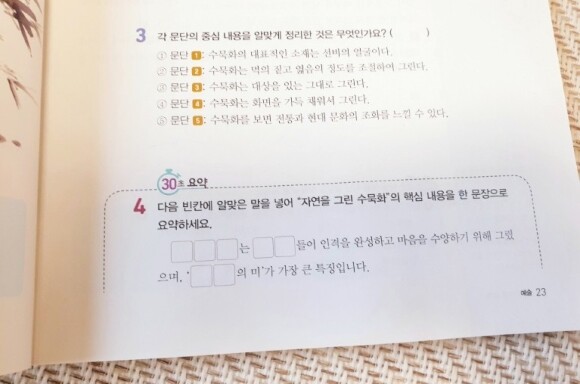 3 각 문단의 중심 내용을 알맞게 정리한 것은 무엇인가요? ( )
① 문단 1: 수묵화의 대표적인 소재는 선비의 얼굴이다.
② 문단 2: 수묵화는 먹의 짙고 옅음의 정도를 조절하여 그린다.
③ 문단 3: 수묵화는 대상을 있는 그대로 그린다.
④ 문단 4: 수묵화는 화면을 가득 채워서 그린다.
⑤ 문단 5: 수묵화를 보면 전통과 현대 문화의 조화를 느낄 수 있다.
30초 요약
4 다음 빈칸에 알맞은 말을 넣어 "자연을 그린 수묵화"의 핵심 내용을 한 문장으로
요약하세요.
는 들이 인격을 완성하고 마음을 수양하기 위해 그렸
으며, ' 의 미'가 가장 큰 특징입니다.
예술 23